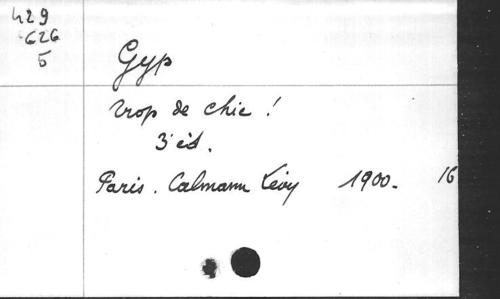 429
626
5
Gyp
Trop de chic !
3e éd.
Paris. Calmann Lévy 1900. 16